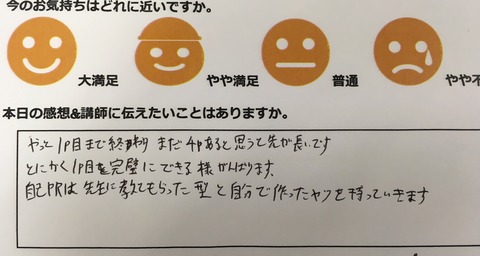 今のお気持ちはどれに近いですか。
大満足 やや満足 普通 やや不
本日の感想&講師に伝えたいことはありますか。
やっと1P目まで終わり まだ4Pあると思うと先が長いです
とにかく1P目を完璧にできる様がんばります。
自己PRは先生に教えてもらった型と自分で作ったヤツを持っていきます